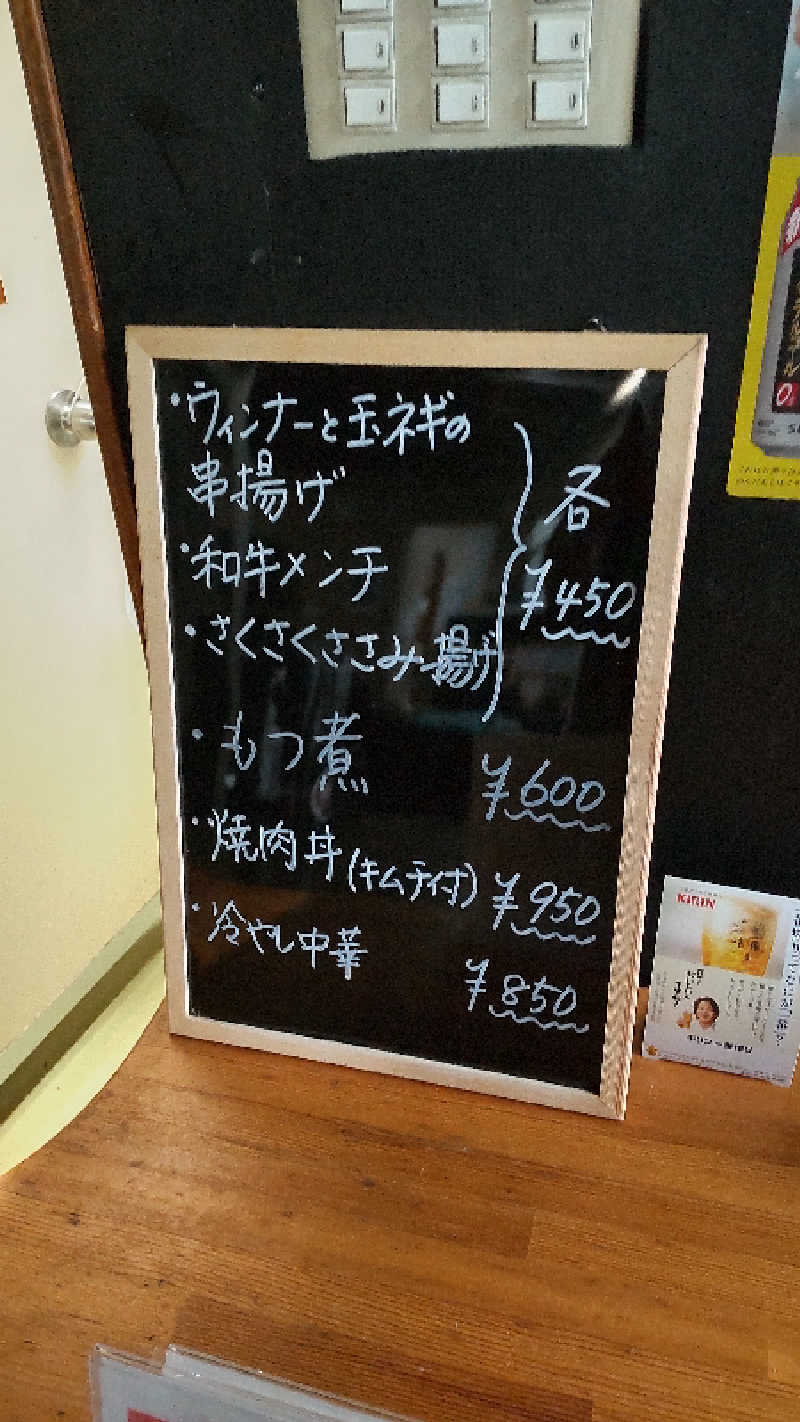 ・ウィンナーと玉ネギの
串揚げ
・和牛メンチ
・さくさくささみ揚げ
各
¥450
・もつ煮 ¥600
・焼肉丼(キムチ付) ¥950
・冷やし中華 ¥850
KIRIN